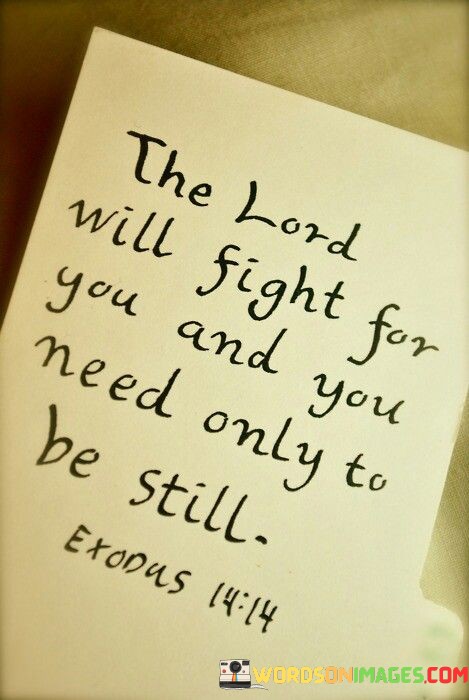 The Lord
will fight for
you and you
need only to
be still.
Exodus 14:14
WORDSONIMAGES.COM